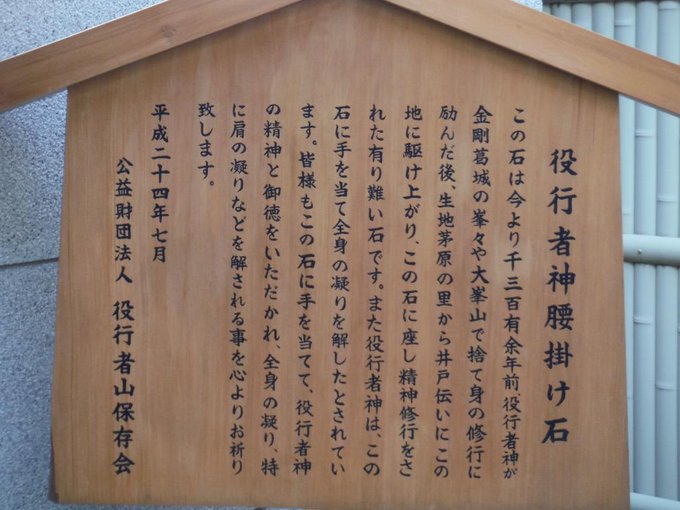 役行者神腰掛け石
この石は今より千三百有余年前、役行者神が
金剛葛城の峯々や大峯山で捨て身の修行に
励んだ後、生地茅原の里から井戸伝いにこの
地に駆け上がり、この石に座し精神修行をさ
れた有り難い石です。また役行者神は、この
石に手を当て全身の凝りを解したとされてい
ます。皆様もこの石に手を当てて、役行者神
の精神と御徳をいただかれ、全身の凝り、特
に肩の凝りなどを解される事を心よりお祈り
致します。
平成二十四年七月
公益財団法人 役行者山保存会